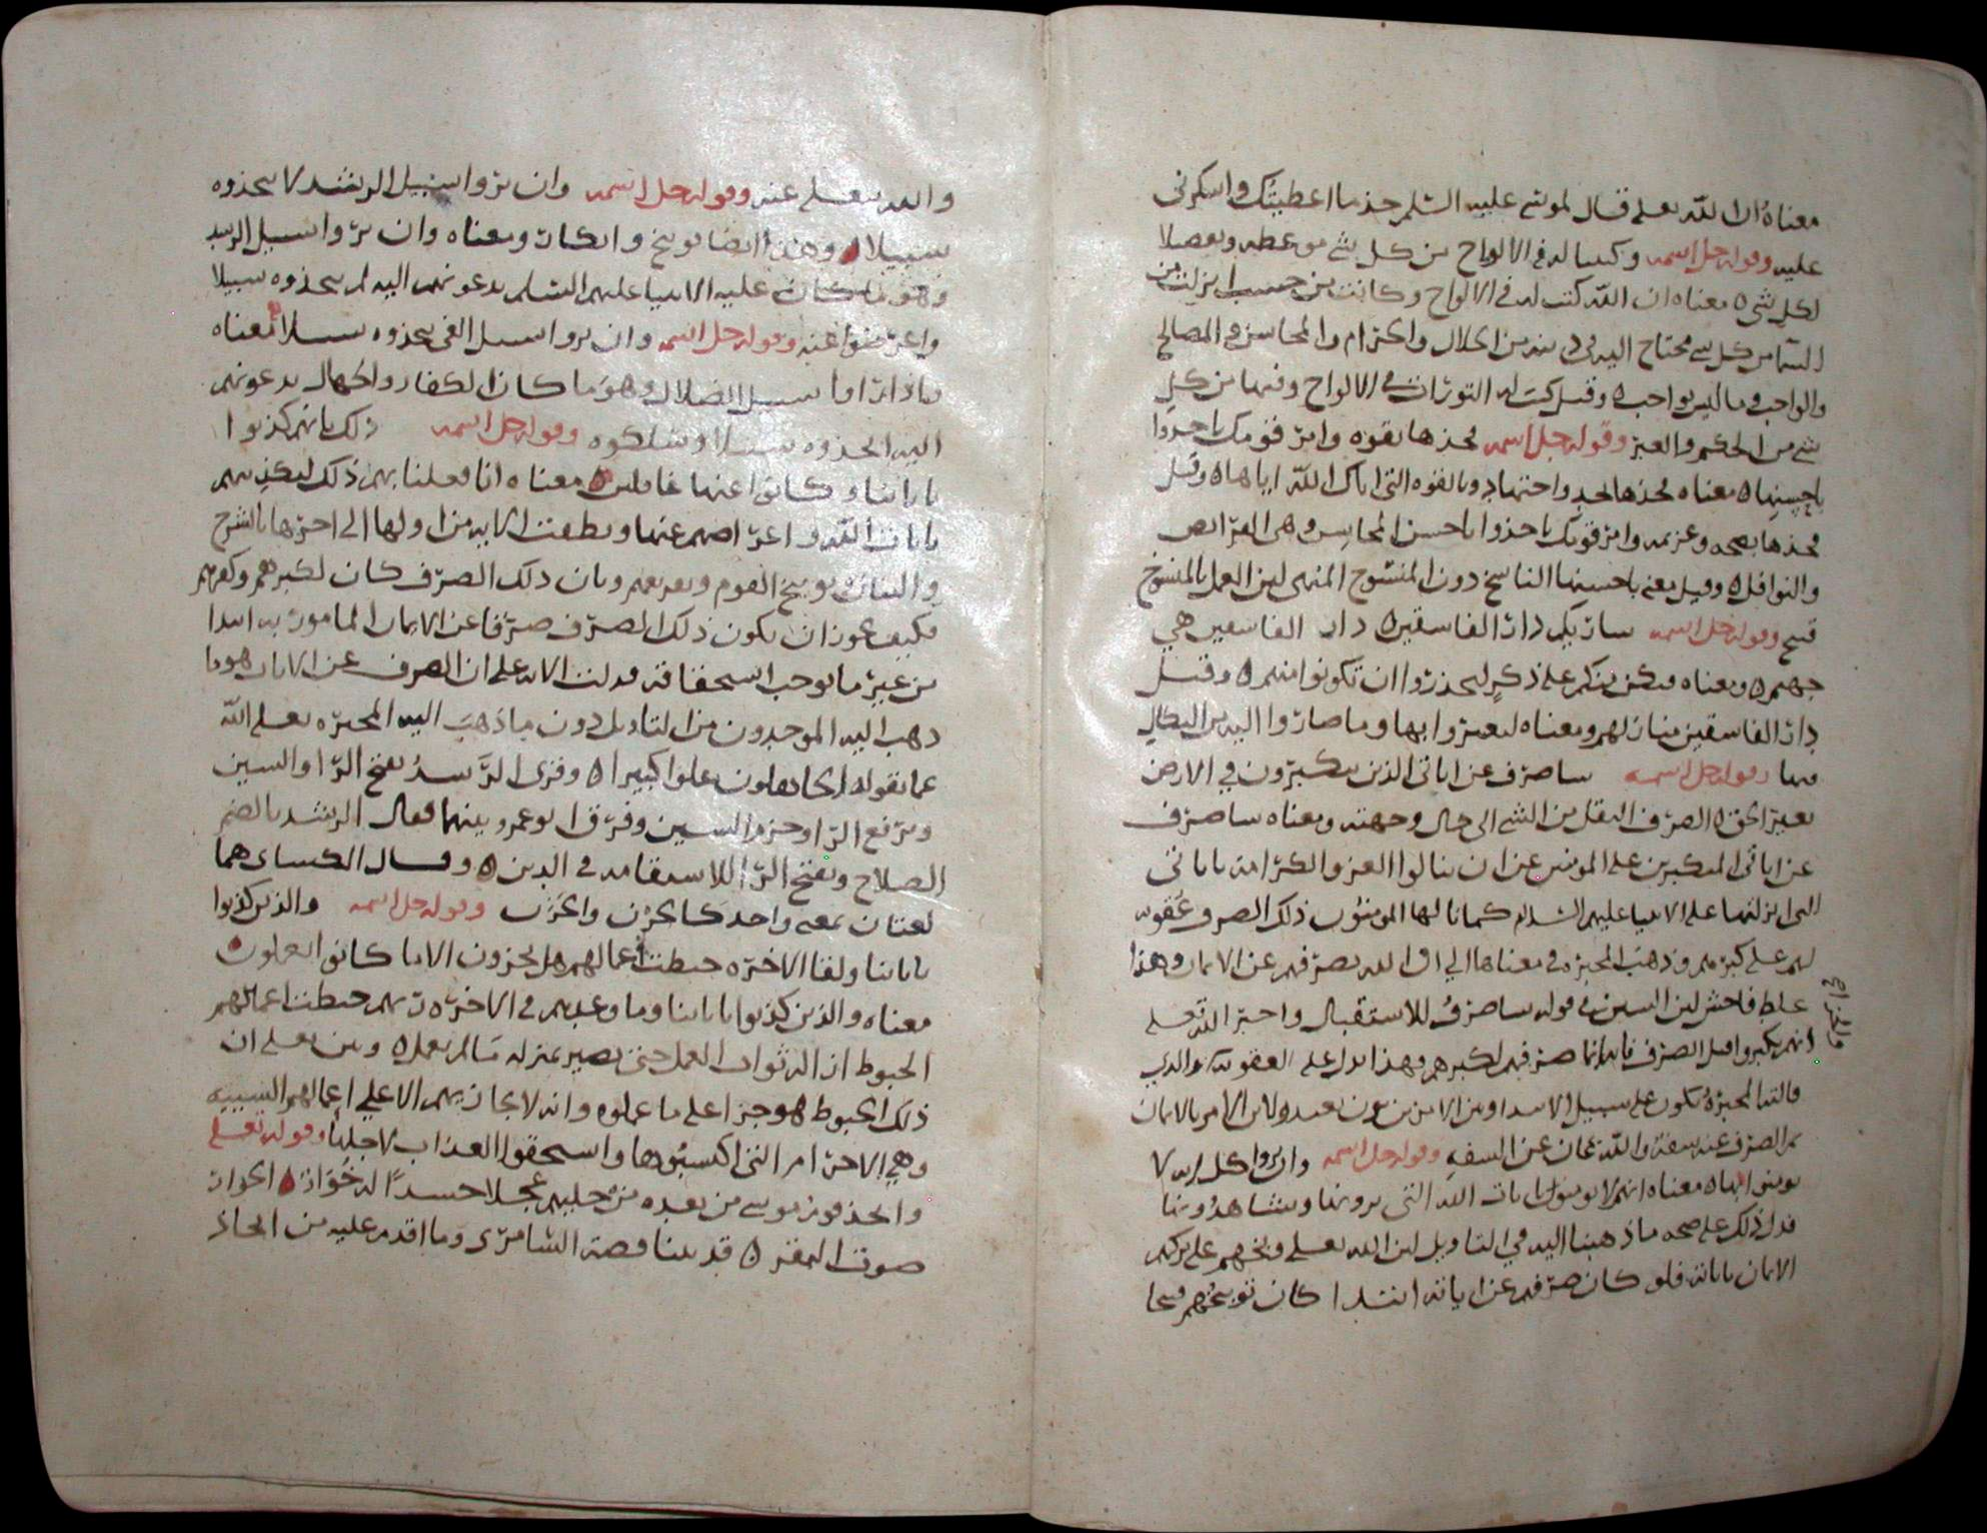 معناه ان الله تعلى قال لموسى عليه السلم خذ ما اعطيتك واشكرني
عليه وقوله جل اسمه وكتبنا له في الالواح من كل شي موعظه وتفصيلا
لكل شي معناه ان الله كتب له في الالواح وكانت من خشب نزلت من
السما من كل شي محتاج اليه في دينه من الحلال والحرام والمحاسن والمصالح
والواجب وما ليس بواجب وقيل كتب له التورات في الالواح وفيها من كل
شي من الحكم والعبر وقوله جل اسمه فخذها بقوه وامر قومك ياخذوا
باحسنها معناه فخذها بجد واجتهاد وبالقوه التي اتاك الله اياها وقيل
فخذها بصحه وعزيمه وامر قومك ياخذوا باحسن المحاسن وهي الفرايض
والنوافل وقيل معنى باحسنها الناسخ دون المنسوخ المنهى لان العمل بالمنسوخ
قبيح وقوله جل اسمه ساريكم دار الفاسقين دار الفاسقين هي
جهنم ومعناه فليكن منكم على ذكر لتحذروا ان تكونوا منهم وقيل
دار الفاسقين منازلهم ومعناه لتعتبروا بها وما صاروا اليه من النكال
فيها وقوله جل اسمه ساصرف عن اياتي الذين يتكبرون في الارض
بغير الحق الصرف النقل من الشي الى حال وجهته ومعناه ساصرف
عن اياتي المتكبرين على المومنين عن ان ينالوا العز والكرامه باياتي
التي انزلتها على الانبيا عليهم السلام كما نالها المومنون ذلك الصرف عقوبه
لهم على كبرهم وذهب المجبره في معناها الى ان الله يصرفهم عن الايمان وهذا
غلط فاحش لان السين في قوله ساصرف للاستقبال واخبر الله تعلى
انهم تكبروا قبل الصرف فانه انما صرفهم لكبرهم فهذا يدل على العقوبه والذي
قالته المجبره يكون على سبيل الابتدا
ثم الصرف عنه سفه والله تعالى عن السفه وقوله جل اسمه وان يروا كل ايه لا
يومنوا بها معناه انهم لا يومنون بايات الله التي يرونها ويشاهدونها
فدل ذلك على صحه ما ذهبنا اليه في التاويل لان الله تعلى وبخهم على تركهم
الايمان باياته فلو كان صرفهم عن اياته ابتدا كان توبيخهم قبيحا
والله تعلى عنه وقوله جل اسمه وان يروا سبيل الرشد لا يتخذوه
سبيلا وهذا ايضا توبيخ وانكار ومعناه وان يروا سبيل الرشد
وهو ما كان عليه الانبيا عليهم السلم يدعونهم اليه لم يتخذوه سبيلا
واعرضوا عنه وقوله جل اسمه وان يروا سبيل الغي يتخذوه سبيلا معناه
فاذا راوا سبيل الضلال وهو ما كان الكفار والجهال يدعونهم
اليه اتخذوه سبيلا وسلكوه وقوله جل اسمه ذلك بانهم كذبوا
باياتنا وكانوا عنها غافلين معناه انا فعلنا بهم ذلك لتكذيبهم
بايات الله واعراضهم عنها ونطقت الايه من اولها الى اخرها بالشرح
والبيان وتوبيخ القوم وتقريعهم وبان ذلك الصرف كان لكبرهم وكفرهم
فكيف يجوز ان يكون ذلك الصرف صرفا عن الايمان المامور به ابتدا
من غير ما يوجب استحقاقه فدلت الايه على ان الصرف عن الايات هو ما
ذهب اليه الموحدون من التاويل دون ما ذهب اليه المجبره تعلى الله
عما يقوله الجاهلون علوا كبيرا وقرى الرشد بفتح الرا والسين
وبرفع الرا وجزم السين وفرق ابو عمرو بينهما فقال الرشد بالضم
الصلاح وبفتح الرا الاستقامه في الدين وقال الكساى هما
لغتان بمعنى واحد كالحزن والحزن وقوله جل اسمه والذين كذبوا
باياتنا ولقا الاخره حبطت اعمالهم هل يجزون الا ما كانوا يعملون
معناه والذين كذبوا باياتنا وما وعدهم في الاخره ربهم حبطت اعمالهم
الحبوط ازاله ثواب العمل حتى يصير بمنزله ما لم يعمل وبين تعلى ان
ذلك الحبوط هو جزا على ما عملوه وانه لا يجازيهم الا على اعمالهم السييه
وهي الاجرام التي اكتسبوها واستحقوا العذاب لاجلها وقوله تعلى
واتخذ قوم موسى من بعده من حليهم عجلا جسدا له خوار الخوار
صوت البقر قد بينا قصة السامرى وما اقدم عليه من اتخاذ